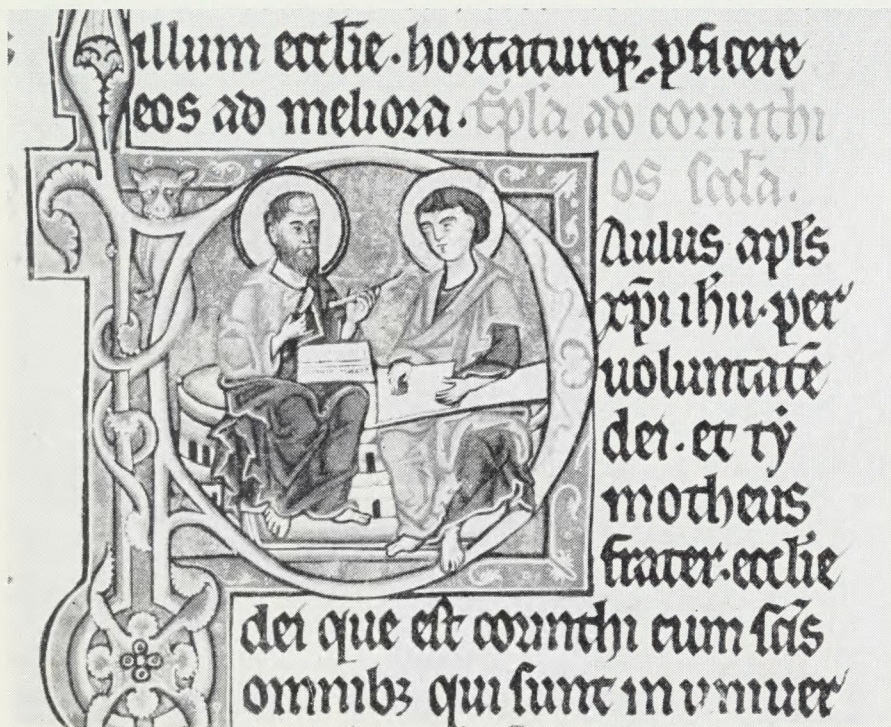 illum eccl̄ie. hortaturq; ꝓficere
eos ad meliora. Ep̄la ad corinthi
os sc̄da.
Aulus apl̄s
xp̄i ih̄u. per
uoluntatē
dei. et tẏ
motheus
frater. eccl̄ie
dei que est corinthi cum sc̄is
omnibꝫ qui sunt in vniuer